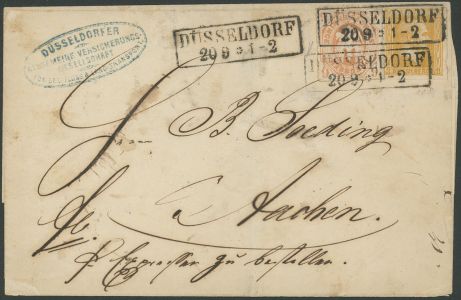 DÜSSELDORFER
ALLGEMEINE VERSICHERUNGS
GESELLSCHAFT
DÜSSELDORF
20 9 * 1-2
DÜSSELDORF
20 9 * 1-2
DÜSSELDORF
20 9 * 1-2
B. Soeding
Aachen.
p Expressen zu bestellen.